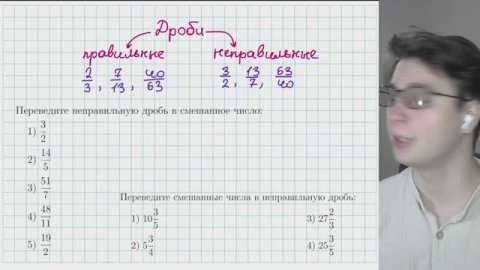 Дроби
правильные неправильные
2/3, 7/13, 40/63 3/2, 13/7, 63/40
Переведите неправильную дробь в смешанное число:
1) 3/2
2) 14/5
3) 51/7
4) 48/11
5) 19/2
Переведите смешанные числа в неправильную дробь:
1) 10 3/5 3) 27 2/3
2) 5 3/4 4) 25 3/5